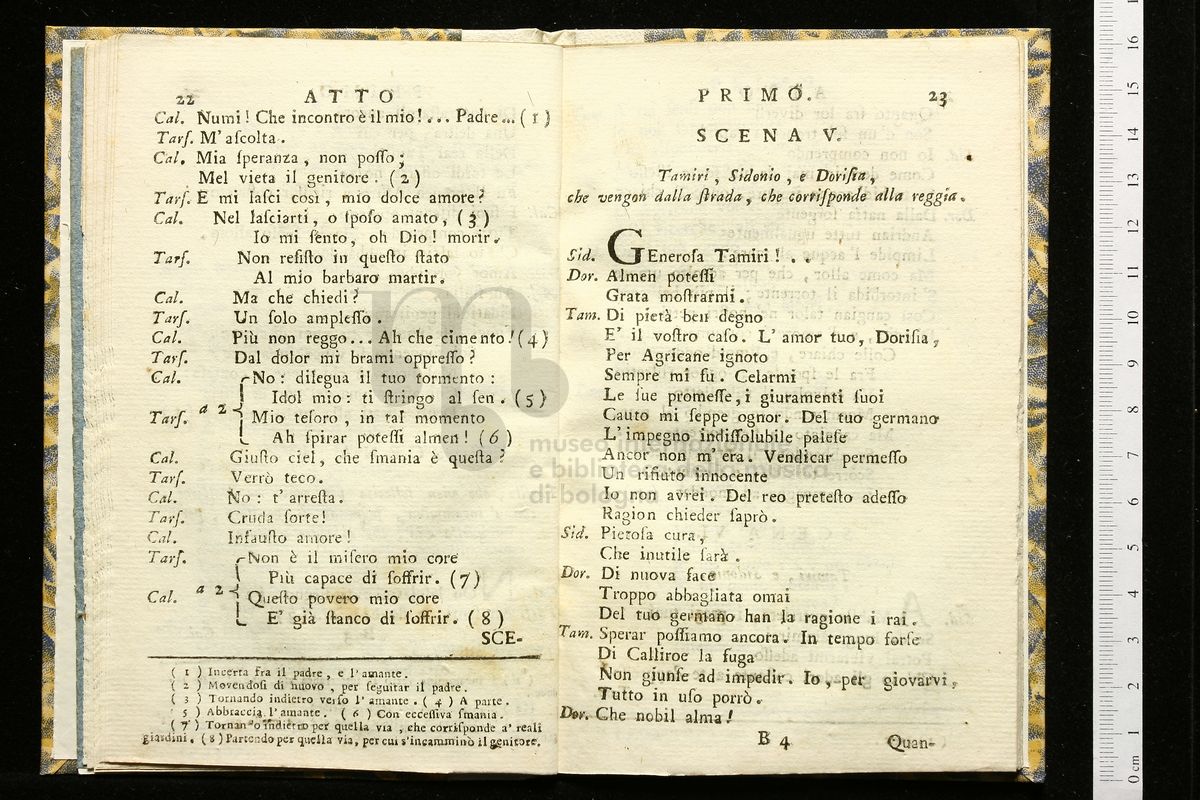 22 ATTO
Cal. Numi! Che incontro è il mio!... Padre... (1)
Tarſ. M'aſcolta.
Cal. Mia ſperanza, non poſſo;
Mel vieta il genitore. (2)
Tarſ. E mi laſci così, mio dolce amore?
Cal. Nel laſciarti, o ſpoſo amato, (3)
Io mi ſento, oh Dio! morir.
Tarſ. Non reſiſto in queſto ſtato
Al mio barbaro martir.
Cal. Ma che chiedi?
Tarſ. Un ſolo ampleſſo.
Cal. Più non reggo... Ah che cimento! (4)
Tarſ. Dal dolor mi brami oppreſſo?
Cal. No: dilegua il tuo tormento:
Idol mio: ti ſtringo al ſen. (5)
a 2
Tarſ. Mio teſoro, in tal momento
Ah ſpirar poteſſi almen! (6)
Cal. Giuſto ciel, che ſmania è queſta?
Tarſ. Verrò teco.
Cal. No: t'arreſta.
Tarſ. Cruda ſorte!
Cal. Infauſto amore!
Tarſ. Non è il miſero mio core
Più capace di ſoffrir. (7)
a 2
Cal. Queſto povero mio core
E' già ſtanco di ſoffrir. (8)
SCE-
(1) Incerta fra il padre, e l'amante.
(2) Movendoſi di nuovo, per ſeguitar il padre.
(3) Tornando indietro verſo l'amante. (4) A parte.
5) Abbraccia l'amante. (6) Con ecceſſiva ſmania.
(7) Tornando indietro per quella via, che corriſponde a' reali
giardini. (8) Partendo per quella via, per cui s'incamminò il genitore.
PRIMO. 23
SCENA V.
Tamiri, Sidonio, e Doriſia,
che vengon dalla ſtrada, che corriſponde alla reggia.
Sid. GEneroſa Tamiri!..
Dor. Almen poteſſi
Grata moſtrarmi.
Tam. Di pietà ben degno
E' il voſtro caſo. L'amor tuo, Doriſia,
Per Agricane ignoto
Sempre mi fu. Celarmi
Le ſue promeſſe, i giuramenti ſuoi
Cauto mi ſeppe ognor. Del tuo germano
L'impegno indiſſolubile paleſe
Ancor non m'era. Vendicar permeſſo
Un rifiuto innocente
Io non avrei. Del reo preteſto adeſſo
Ragion chieder ſaprò.
Sid. Pietoſa cura,
Che inutile ſarà.
Dor. Di nuova face
Troppo abbagliata omai
Del tuo germano han la ragione i rai.
Tam. Sperar poſſiamo ancora. In tempo forſe
Di Calliroe la fuga
Non giunſe ad impedir. Io, per giovarvi,
Tutto in uſo porrò.
Dor. Che nobil alma!
B 4 Quan-
museo internazionale
e biblioteca della musica
di bologna
0 cm 1 2 3 4 5 6 7 8 9 10 11 12 13 14 15 16